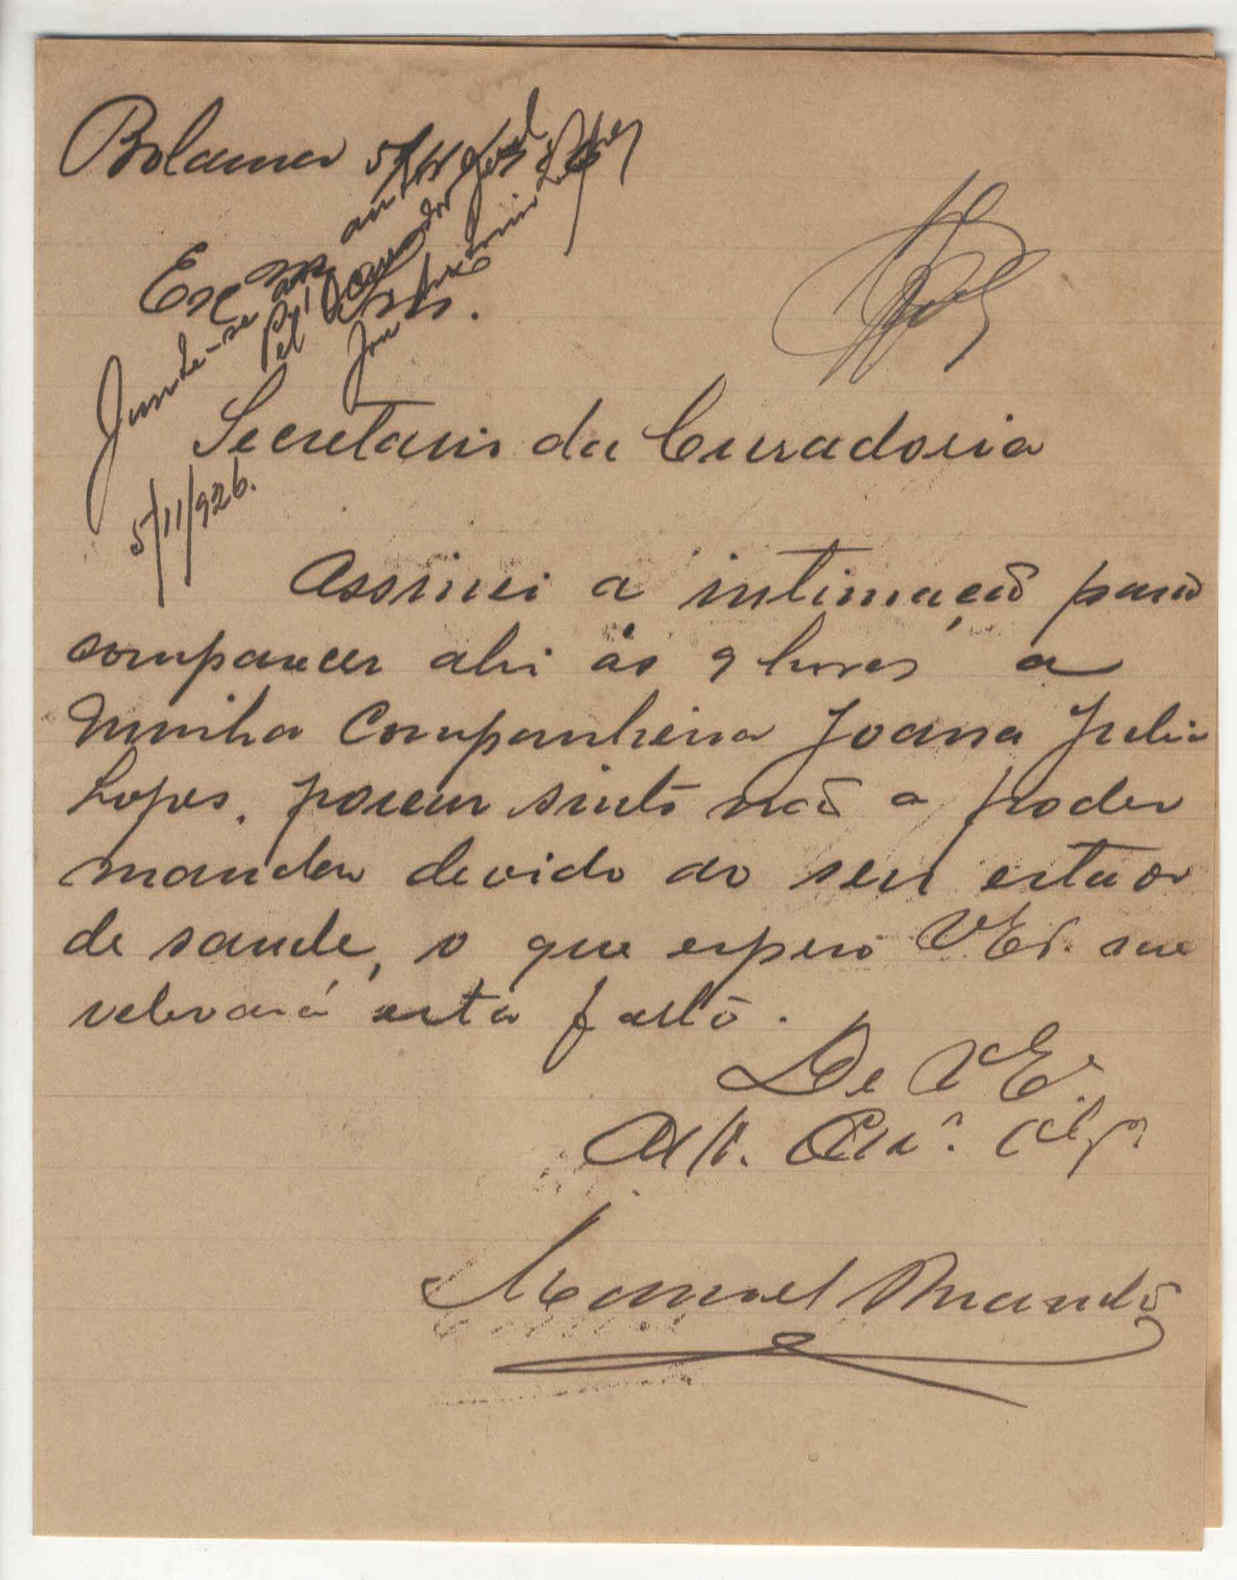 Bolama 5/11/926
Exmo Snr.
Junte-se aos autos
Pel' Curador Geral
5/11/926.
Secretario da Curadoria
Assinei a intimação para
comparecer ahi ás 9 horas a
minha Companheira Joana Julia
Lopes, porem sinto não a poder
mandar devido ao seu estado
de saude, o que espero V. Exª. me
relevará esta falta.
De V. Exª.
Att. Crº. Obgº.
Manuel